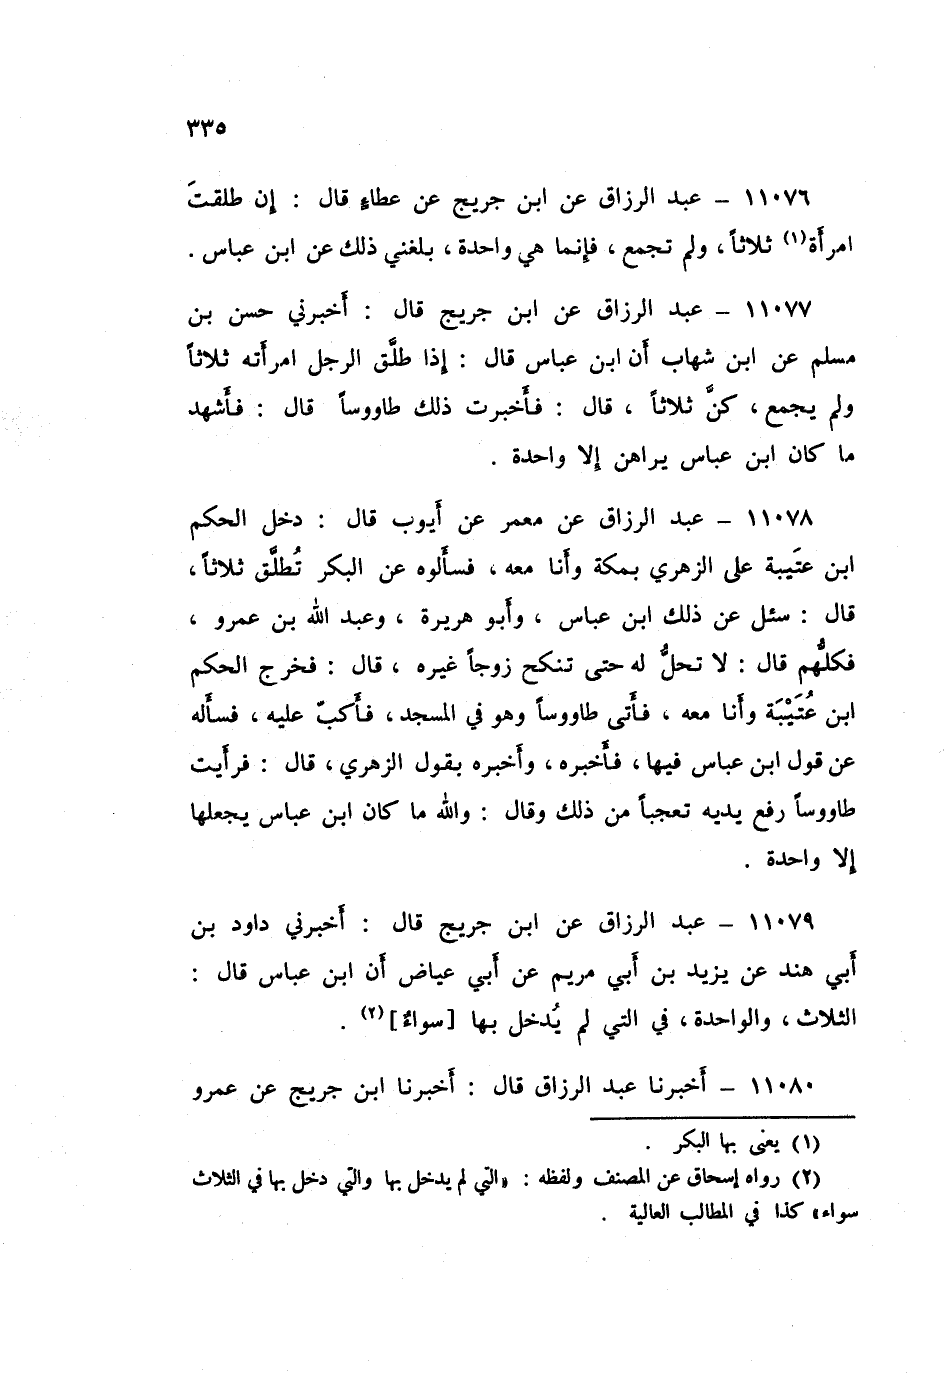 ٣٣٥
١١٠٧٦ – عبد الرزاق عن ابن جريج عن عطاءٍ قال : إن طلقتَ
امرأَة(١) ثلاثاً ، ولم تجمع ، فإنما هي واحدة ، بلغني ذلك عن ابن عباس .
١١٠٧٧ – عبد الرزاق عن ابن جريج قال : أَخبرني حسن بن
مسلم عن ابن شهاب أَن ابن عباس قال : إذا طلَّق الرجل امرأَته ثلاثاً
ولم يجمع ، كنَّ ثلاثاً ، قال : فأَخبرت ذلك طاووساً قال : فأَشهد
ما كان ابن عباس يراهن إلا واحدة .
١١٠٧٨ – عبد الرزاق عن معمر عن أَيوب قال : دخل الحكم
ابن عتَيبة على الزهري بمكة وأَنا معه ، فسأَلوه عن البكر تُطلَّق ثلاثاً ،
قال : سئل عن ذلك ابن عباس ، وأَبو هريرة ، وعبد الله بن عمرو ،
فكلُّهم قال : لا تحلُّ له حتى تنكح زوجاً غيره ، قال : فخرج الحكم
ابن عُتَيْبَة وأَنا معه ، فأَتى طاووساً وهو في المسجد ، فأَكبّ عليه ، فسأَله
عن قول ابن عباس فيها ، فأَخبره ، وأَخبره بقول الزهري ، قال : فرأَيت
طاووساً رفع يديه تعجباً من ذلك وقال : والله ما كان ابن عباس يجعلها
إلا واحدة .
١١٠٧٩ – عبد الرزاق عن ابن جريج قال : أَخبرني داود بن
أَبي هند عن يزيد بن أَبي مريم عن أَبي عياض أَن ابن عباس قال :
الثلاث ، والواحدة ، في التي لم يُدخل بها [سواءٌ](٢) .
١١٠٨٠ – أَخبرنا عبد الرزاق قال : أَخبرنا ابن جريج عن عمرو
(١) يعنى بها البكر .
(٢) رواه إسحاق عن المصنف ولفظه : «التي لم يدخل بها والتي دخل بها في الثلاث
سواء» كذا في المطالب العالية .